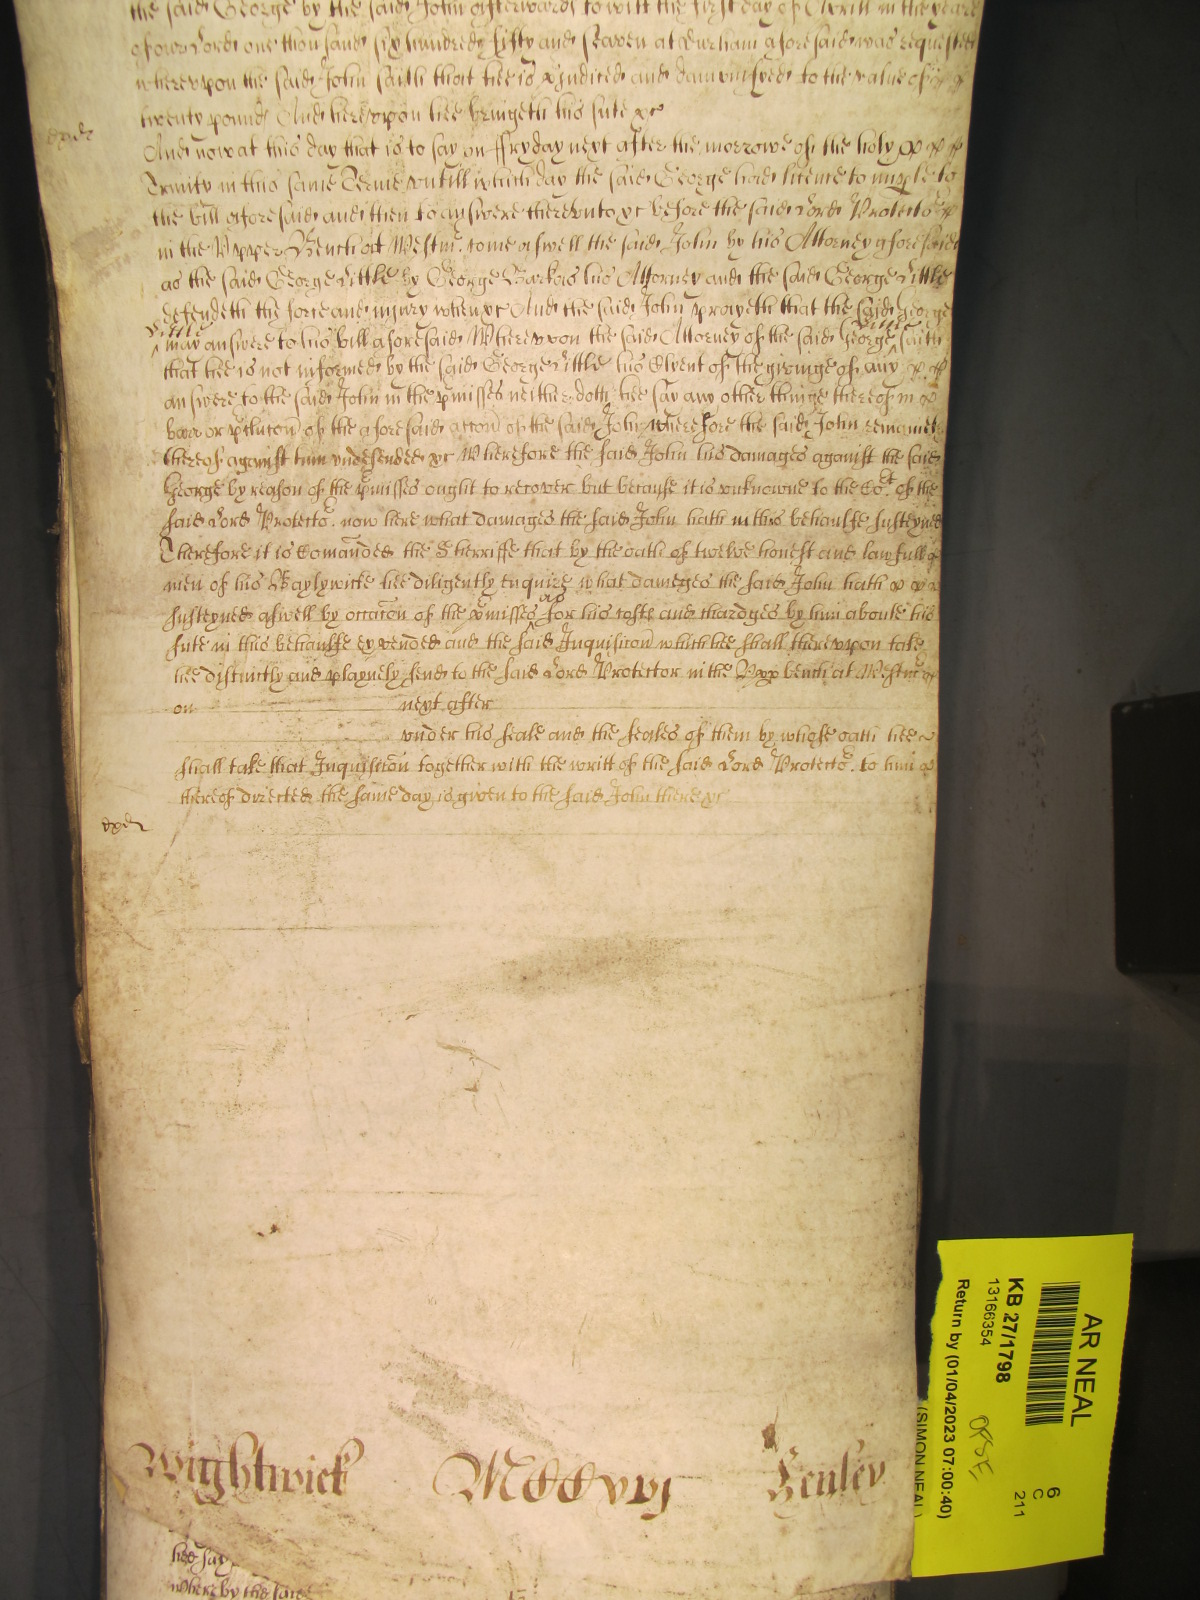 the said George by the said John afterwards to witt the first day of Aprill in the yeare
of our Lord one thousand six hundred fifty and seaven at Durham aforesaid was requested
wherevpon the said John saith that hee is p'iudiced and damnifyed to the value of
twenty pound And herevpon hee bringeth his sute &c
And now at this day that is to say on ffryday next after the morrowe of the holy
Trinity in this same Terme vntill which day the said George had licence to imple to
the bill aforesaid and then to answere therevnto &c before the said Lord Protector
in the Vpper Bench at Westm' come aswell the said John by his Attorney aforesaid
as the said George Little by George Barkas his Attorney and the said George Little
defendeth the force and iniury when &c And the said John prayeth that the said George
Little may answere to his bill aforesaid Wherevpon the said Attorney of the said George Little saith
that hee is not informed by the said George Little his Clyent of the giveinge of any
answere to the said John in the p'misses neither doth hee say any other thinge thereof in
barr or p'clucon of the aforesaid accon of the said John wherefore the said John remaineth
thereof against him vndefended &c Wherefore the said John his damages against the said
George by reason of the p'misses ought to recover but because it is vnknowne to the Cot of the
said Lord Protector now here what damages the said John hath in this behaulfe susteyned
Therefore it is Comanded the Sherriffe that by the oath of twelve honest and lawfull
men of his Baylywicke hee diligently enquire what dameges the said John hath
susteyned aswell by occacon of the p'misses as for his costs and chardges by him aboute his
sute in this behaulfe expended and the said Inquisicon which hee shall therevpon take
hee distinctly and playnely send to the said Lord Protector in the Vpp bench at Westm' &c
on next after
vnder his seale and the seales of them by whose oath hee
shall take that Inquisition together with the writt of the said Lord Protector to him
thereof directed the same day is given to the said John there &c
Wightwick MCCxvj Henley
hee say
whereby the said
AR NEAL
KB 27/1798
13166354
Return by (01/04/2023 07:00:40)
(SIMON NEAL)
6
C
211